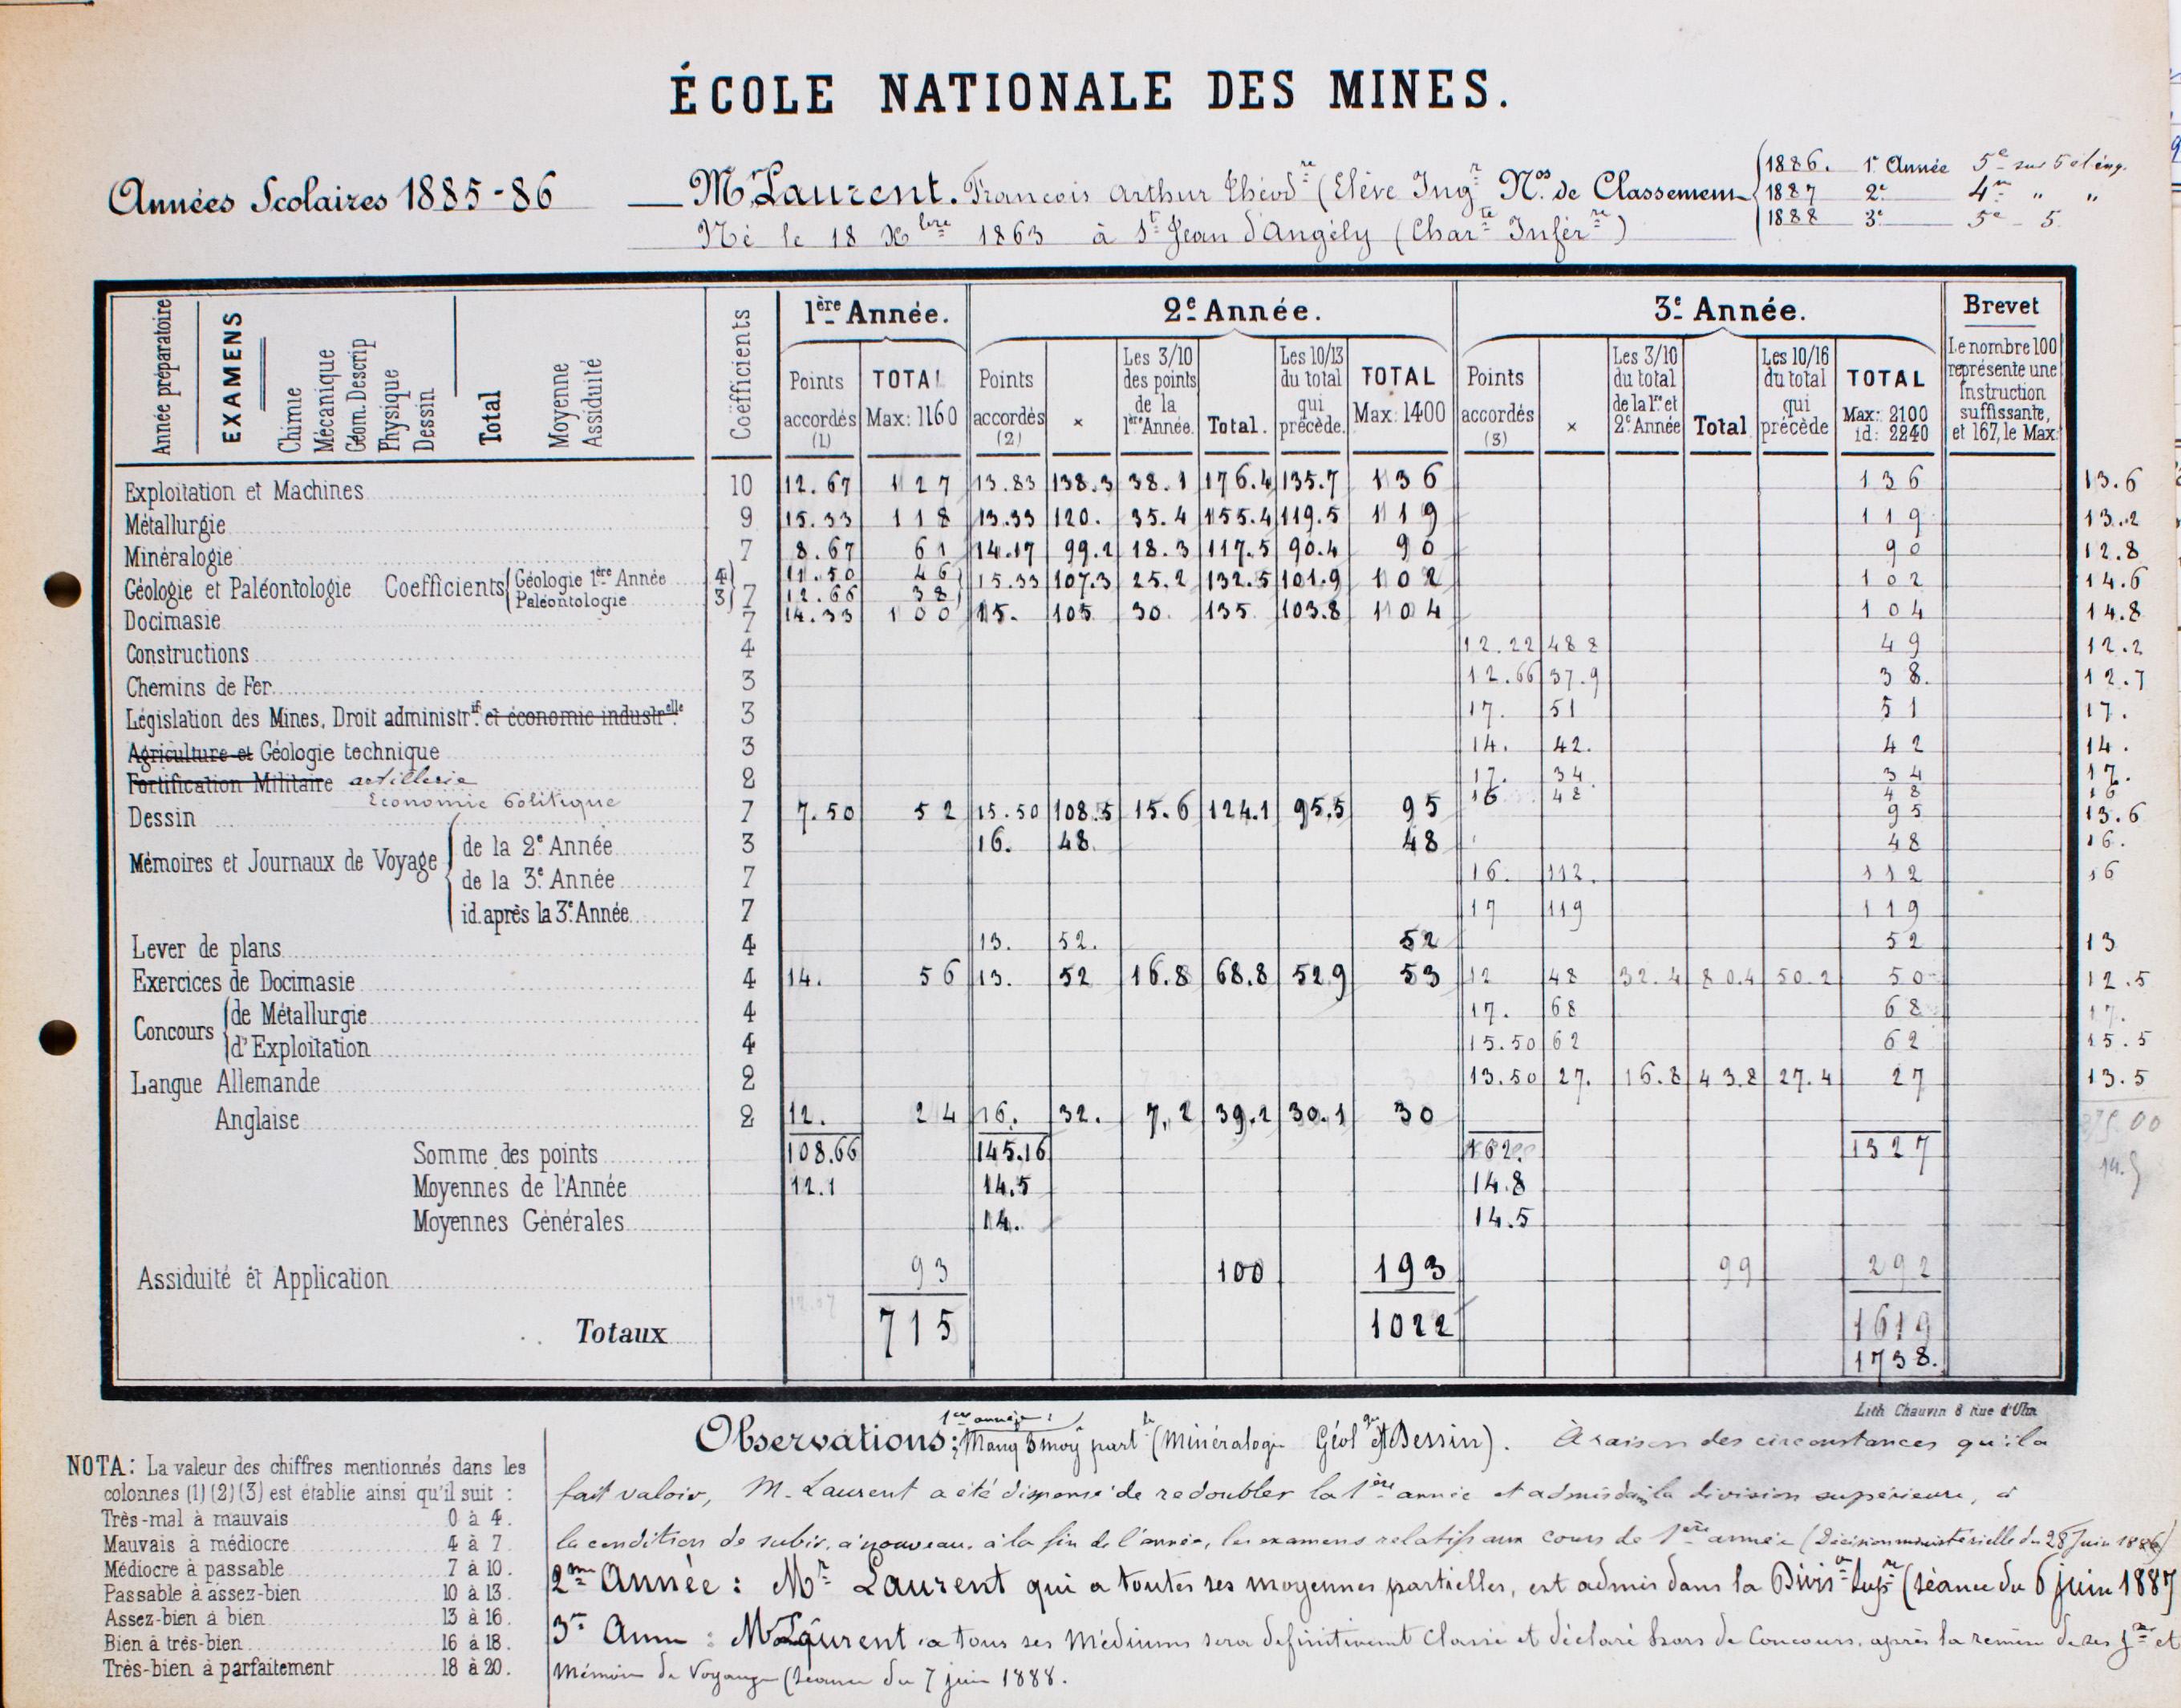 ÉCOLE NATIONALE DES MINES.
Années Scolaires 1885-86 M. Laurent. François Arthur Théodre (Elève Ingr Nos de Classement 1886. 1e Année 5e sur 5 él. ing.
1887 2e 4me " "
1888 3e 5e - 5
Né le 18 Xbre 1863 à St Jean d'Angély (Charte Inférre)
Année préparatoire EXAMENS Chimie Mécanique Géom. Descrip Physique Dessin Total Moyenne Assiduité Coëfficients
1ère Année. 2e Année. 3e Année. Brevet
Points accordés (1) TOTAL Max: 1160 Points accordés (2) × Les 3/10 des points de la 1ère Année. Total. Les 10/13 du total qui précède. TOTAL Max: 1400 Points accordés (3) × Les 3/10 du total de la 1re et 2e Année Total Les 10/16 du total qui précède TOTAL Max: 2100 id: 2240 Le nombre 100 représente une Instruction suffissante, et 167, le Max:
Exploitation et Machines 10 12.67 127 13.83 138.3 38.1 176.4 135.7 136 136 13.6
Métallurgie 9 15.33 118 13.33 120. 35.4 155.4 119.5 119 119 13.2
Minéralogie 7 8.67 61 14.17 99.2 18.3 117.5 90.4 90 90 12.8
Géologie et Paléontologie Coefficients Géologie 1ère Année 4 11.50 46
Paléontologie 3 7 12.66 38 15.33 107.3 25.2 132.5 101.9 102 102 14.6
Docimasie 7 14.33 100 15. 105 30. 135 103.8 104 104 14.8
Constructions 4 12.22 48 8 49 12.2
Chemins de Fer 3 12.66 37.9 38. 12.7
Législation des Mines, Droit administrif. et économie industrelle 3 17. 51 51 17.
Agriculture et Géologie technique 3 14. 42. 42 14.
Fortification Militaire artillerie 2 17. 34 34 17.
Economie Politique 16 48 48 16
Dessin 7 7.50 52 15.50 108.5 15.6 124.1 95.5 95 95 13.6
Mémoires et Journaux de Voyage de la 2e Année 3 16. 48. 48 48 16.
de la 3e Année 7 16. 112. 112 16
id. après la 3e Année 7 17 119 119
Lever de plans 4 13. 52. 52 52 13
Exercices de Docimasie 4 14. 56 13. 52 16.8 68.8 52.9 53 12 48 32.4 80.4 50.2 50 12.5
Concours de Métallurgie 4 17. 68 68 17.
d'Exploitation 4 15.50 62 62 15.5
Langue Allemande 2 13.50 27. 16.8 43.8 27.4 27 13.5
Anglaise 2 12. 24 16. 32. 7,2 39.2 30.1 30
Somme des points 108.66 145.16 1327
Moyennes de l'Année 12.1 14.5 14.8
Moyennes Générales 14. 14.5
Assiduité êt Application 93 100 193 99 292
Totaux 715 1022 1619
1738.
Lith Chauvin 8 Rue d'Ulm
NOTA: La valeur des chiffres mentionnés dans les
colonnes (1) (2) (3) est établie ainsi qu'il suit :
Très-mal à mauvais 0 à 4.
Mauvais à médiocre 4 à 7
Médiocre à passable 7 à 10.
Passable à assez-bien 10 à 13.
Assez-bien à bien 13 à 16.
Bien à très-bien 16 à 18.
Très-bien à parfaitement 18 à 20.
Observations: 1ere année: Manq 3 moy partle (Minéralogie Géolque et Dessin). À raison des circonstances qu'il a
fait valoir, M. Laurent a été dispensé de redoubler la 1ère année et admis dans la division supérieure, à
la condition de subir, à nouveau, à la fin de l'année, les examens relatifs aux cours de 1ère année (Décision ministérielle du 28 Juin 1886)
2me Année : Mr Laurent qui a toutes ses moyennes partielles, est admis dans la Divison Supre (Séance du 6 juin 1887
3me Anne : M Laurent a tous ses médiums sera définitivement classé et déclaré hors de Concours, après la remise de ses et
Mémoire de Voyage (Séance du 7 juin 1888.